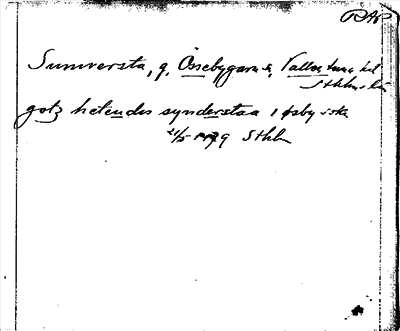 Sunnersta, g, Össebygarn s, Vallentuna hd
Sthlms län
gotz hetendis synderstaa i øsby sokn
21/5 1479 Sthlm